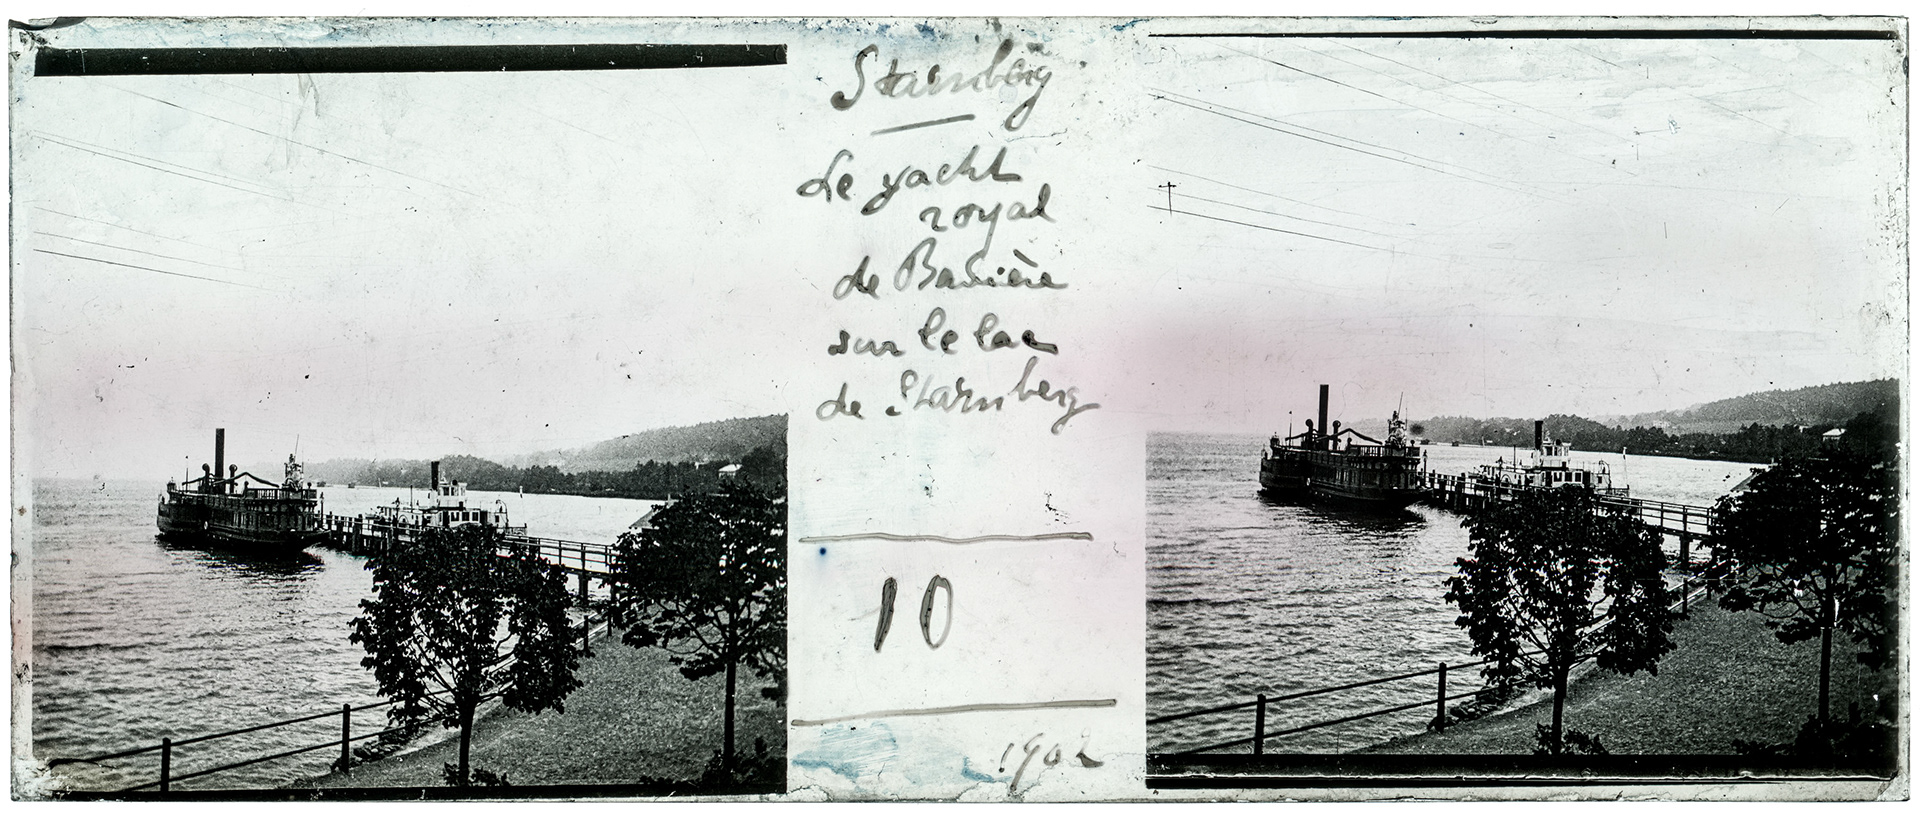 Starnberg
Le yacht
royal
de Bavière
sur le lac
de Starnberg
10
1902